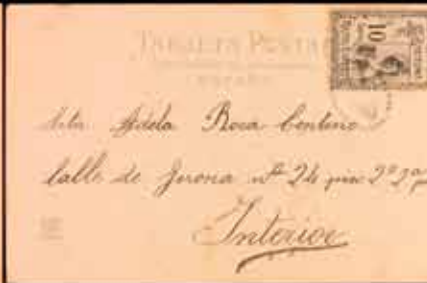 TARJETA POSTAL
ESPAÑA
10
Adela Roca Centeno
Calle de Gerona nº 24 piso 2º 2ª
Interior